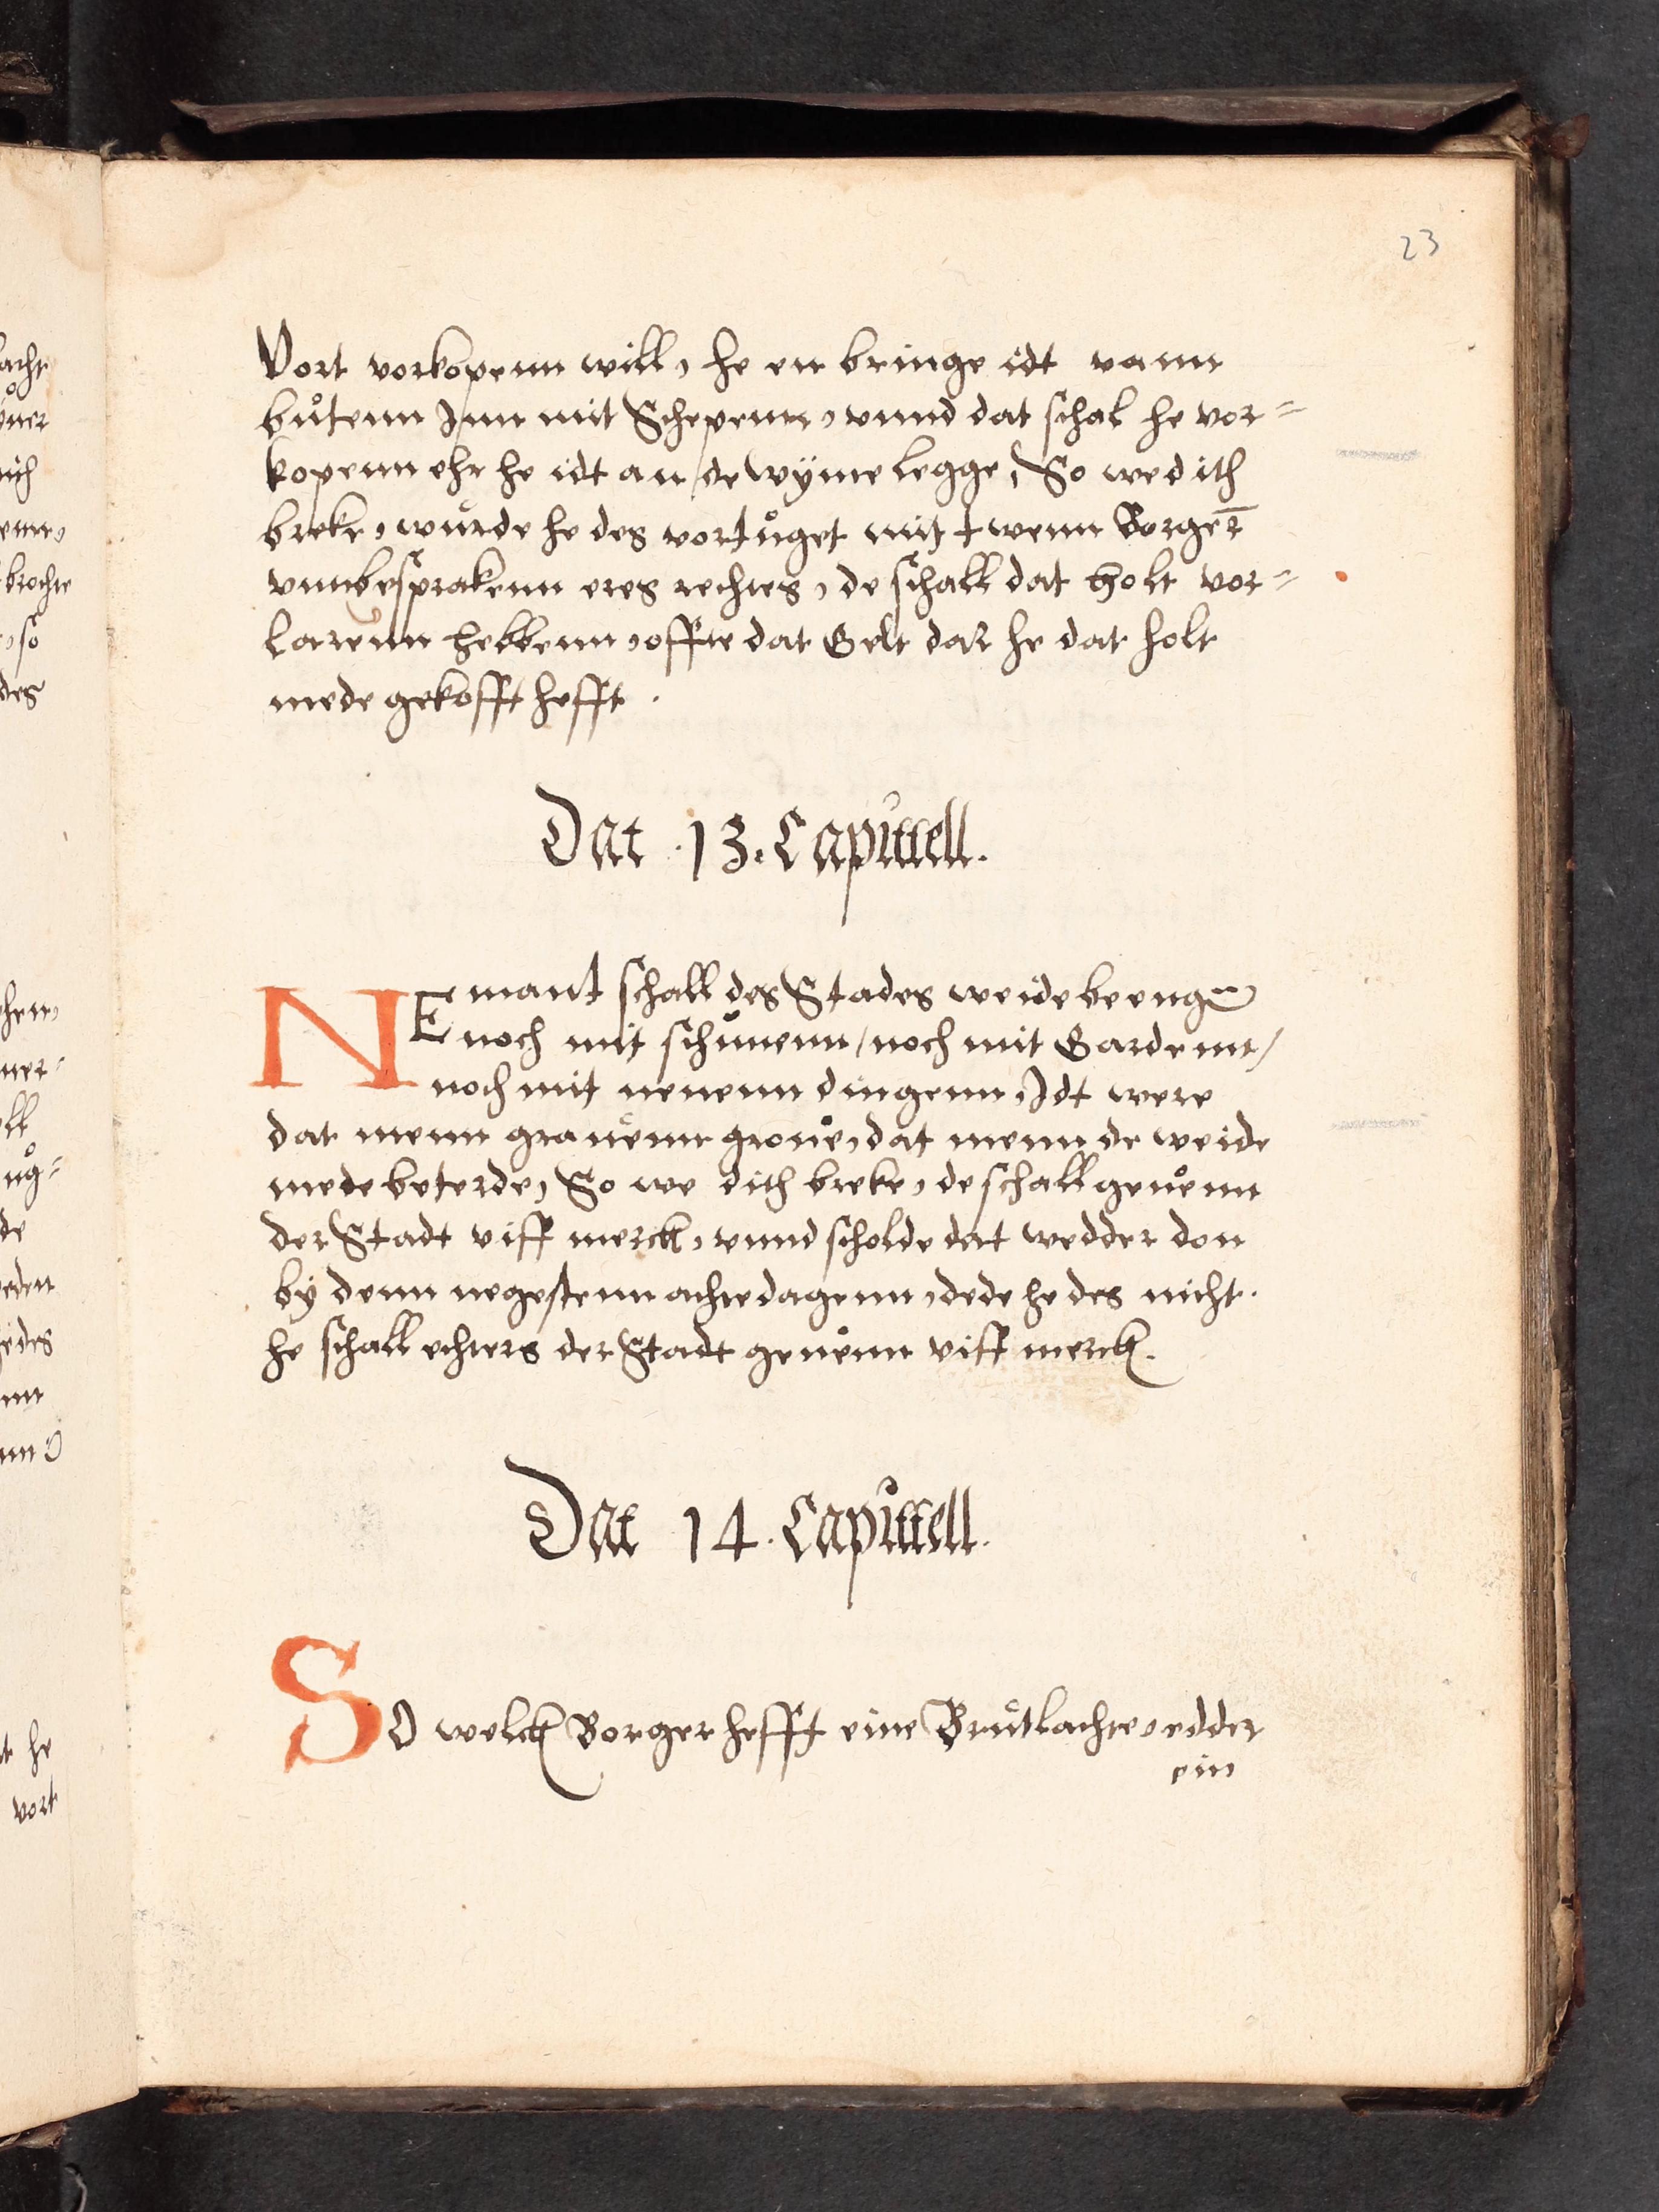 23
Vort vorkopenn will, he en bringe idt vann
bůtenn Inn mit Schepenn, vnnd dat schal he vor=
kopenn ehr he idt an de wÿme legge, So we dith
breke, wůrde he des vortůget mit twenn Borger̄
vnnbesprakenn eres rechtes, de schall dat holt vor=
larenn hebbenn, offte dat Gelt dar he dat holt
mede gekofft hefft.
Dat .13. Capittell.
NEmant schall des Stades weide beengn̄
noch mit schůnenn / noch mit Gardenn /
noch mit nenenn dingenn, Idt were
dat menn grauenn groue, dat menn de weide
mede beterde, So we dith breke, de schall geuenn
der Stadt viff merck, vnnd scholde dat wedder don
bÿ denn negestenn achte dagenn, dede he des nicht.
he schall echters der Stadt geuenn viff merck.
Dat 14. Capittell.
SO welck Borger hefft eine Brůtlachte, edder
ein